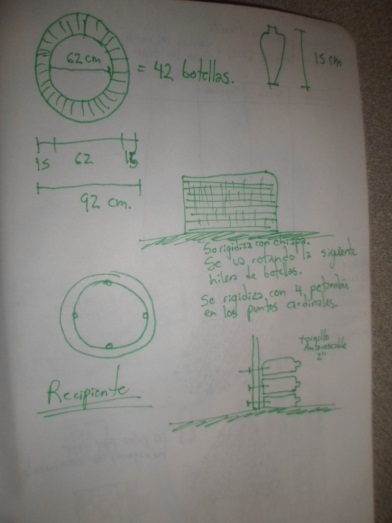 62 cm.
= 42 botellas.
15 cm
15 62 15
92 cm.
Se rigidiza con
Se va rotando la siguiente
hilera de botellas.
Se rigidiza con 4
en los puntos cardinales.
tornillo
Autorroscable
2"
Recipiente